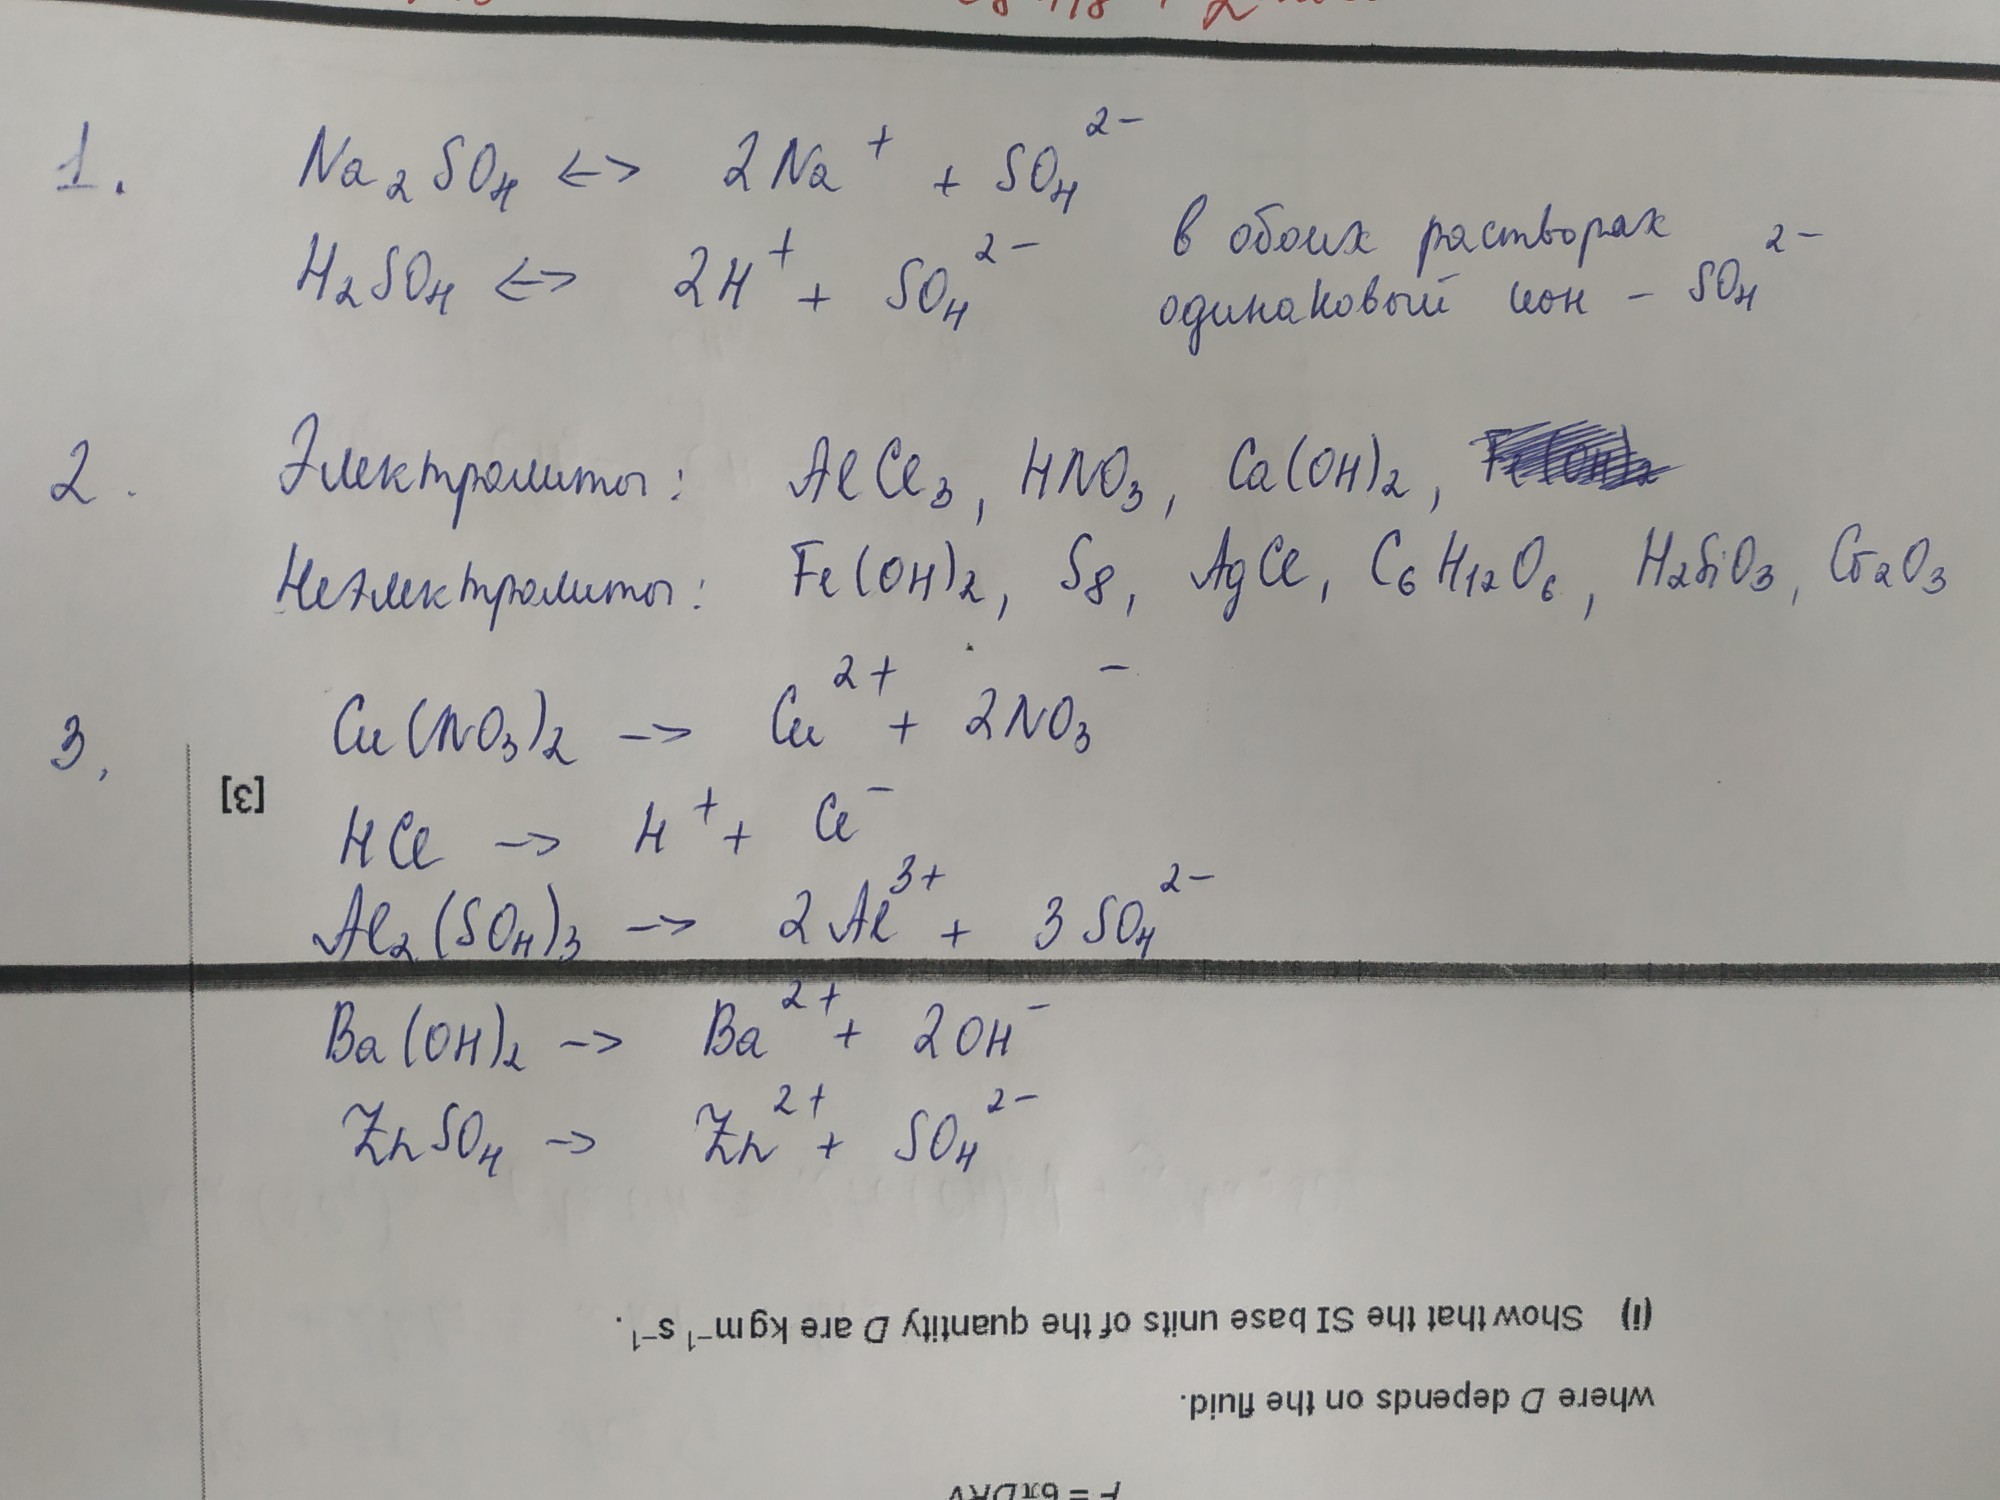 1. Na₂SO₄ <-> 2Na⁺ + SO₄²⁻
H₂SO₄ <-> 2H⁺ + SO₄²⁻
в обоих растворах
одинаковый ион - SO₄²⁻
2. Электролиты: AlCl₃, HNO₃, Ca(OH)₂,
Неэлектролиты: Fe(OH)₂, S₈, AgCl, C₆H₁₂O₆, H₂SiO₃, Cr₂O₃
3. Cu(NO₃)₂ -> Cu²⁺ + 2NO₃⁻
[3]
HCl -> H⁺ + Cl⁻
Al₂(SO₄)₃ -> 2Al³⁺ + 3SO₄²⁻
Ba(OH)₂ -> Ba²⁺ + 2OH⁻
ZnSO₄ -> Zn²⁺ + SO₄²⁻
(i) Show that the SI base units of the quantity D are kg m⁻¹ s⁻¹.
where D depends on the fluid.
F = 6πDRv